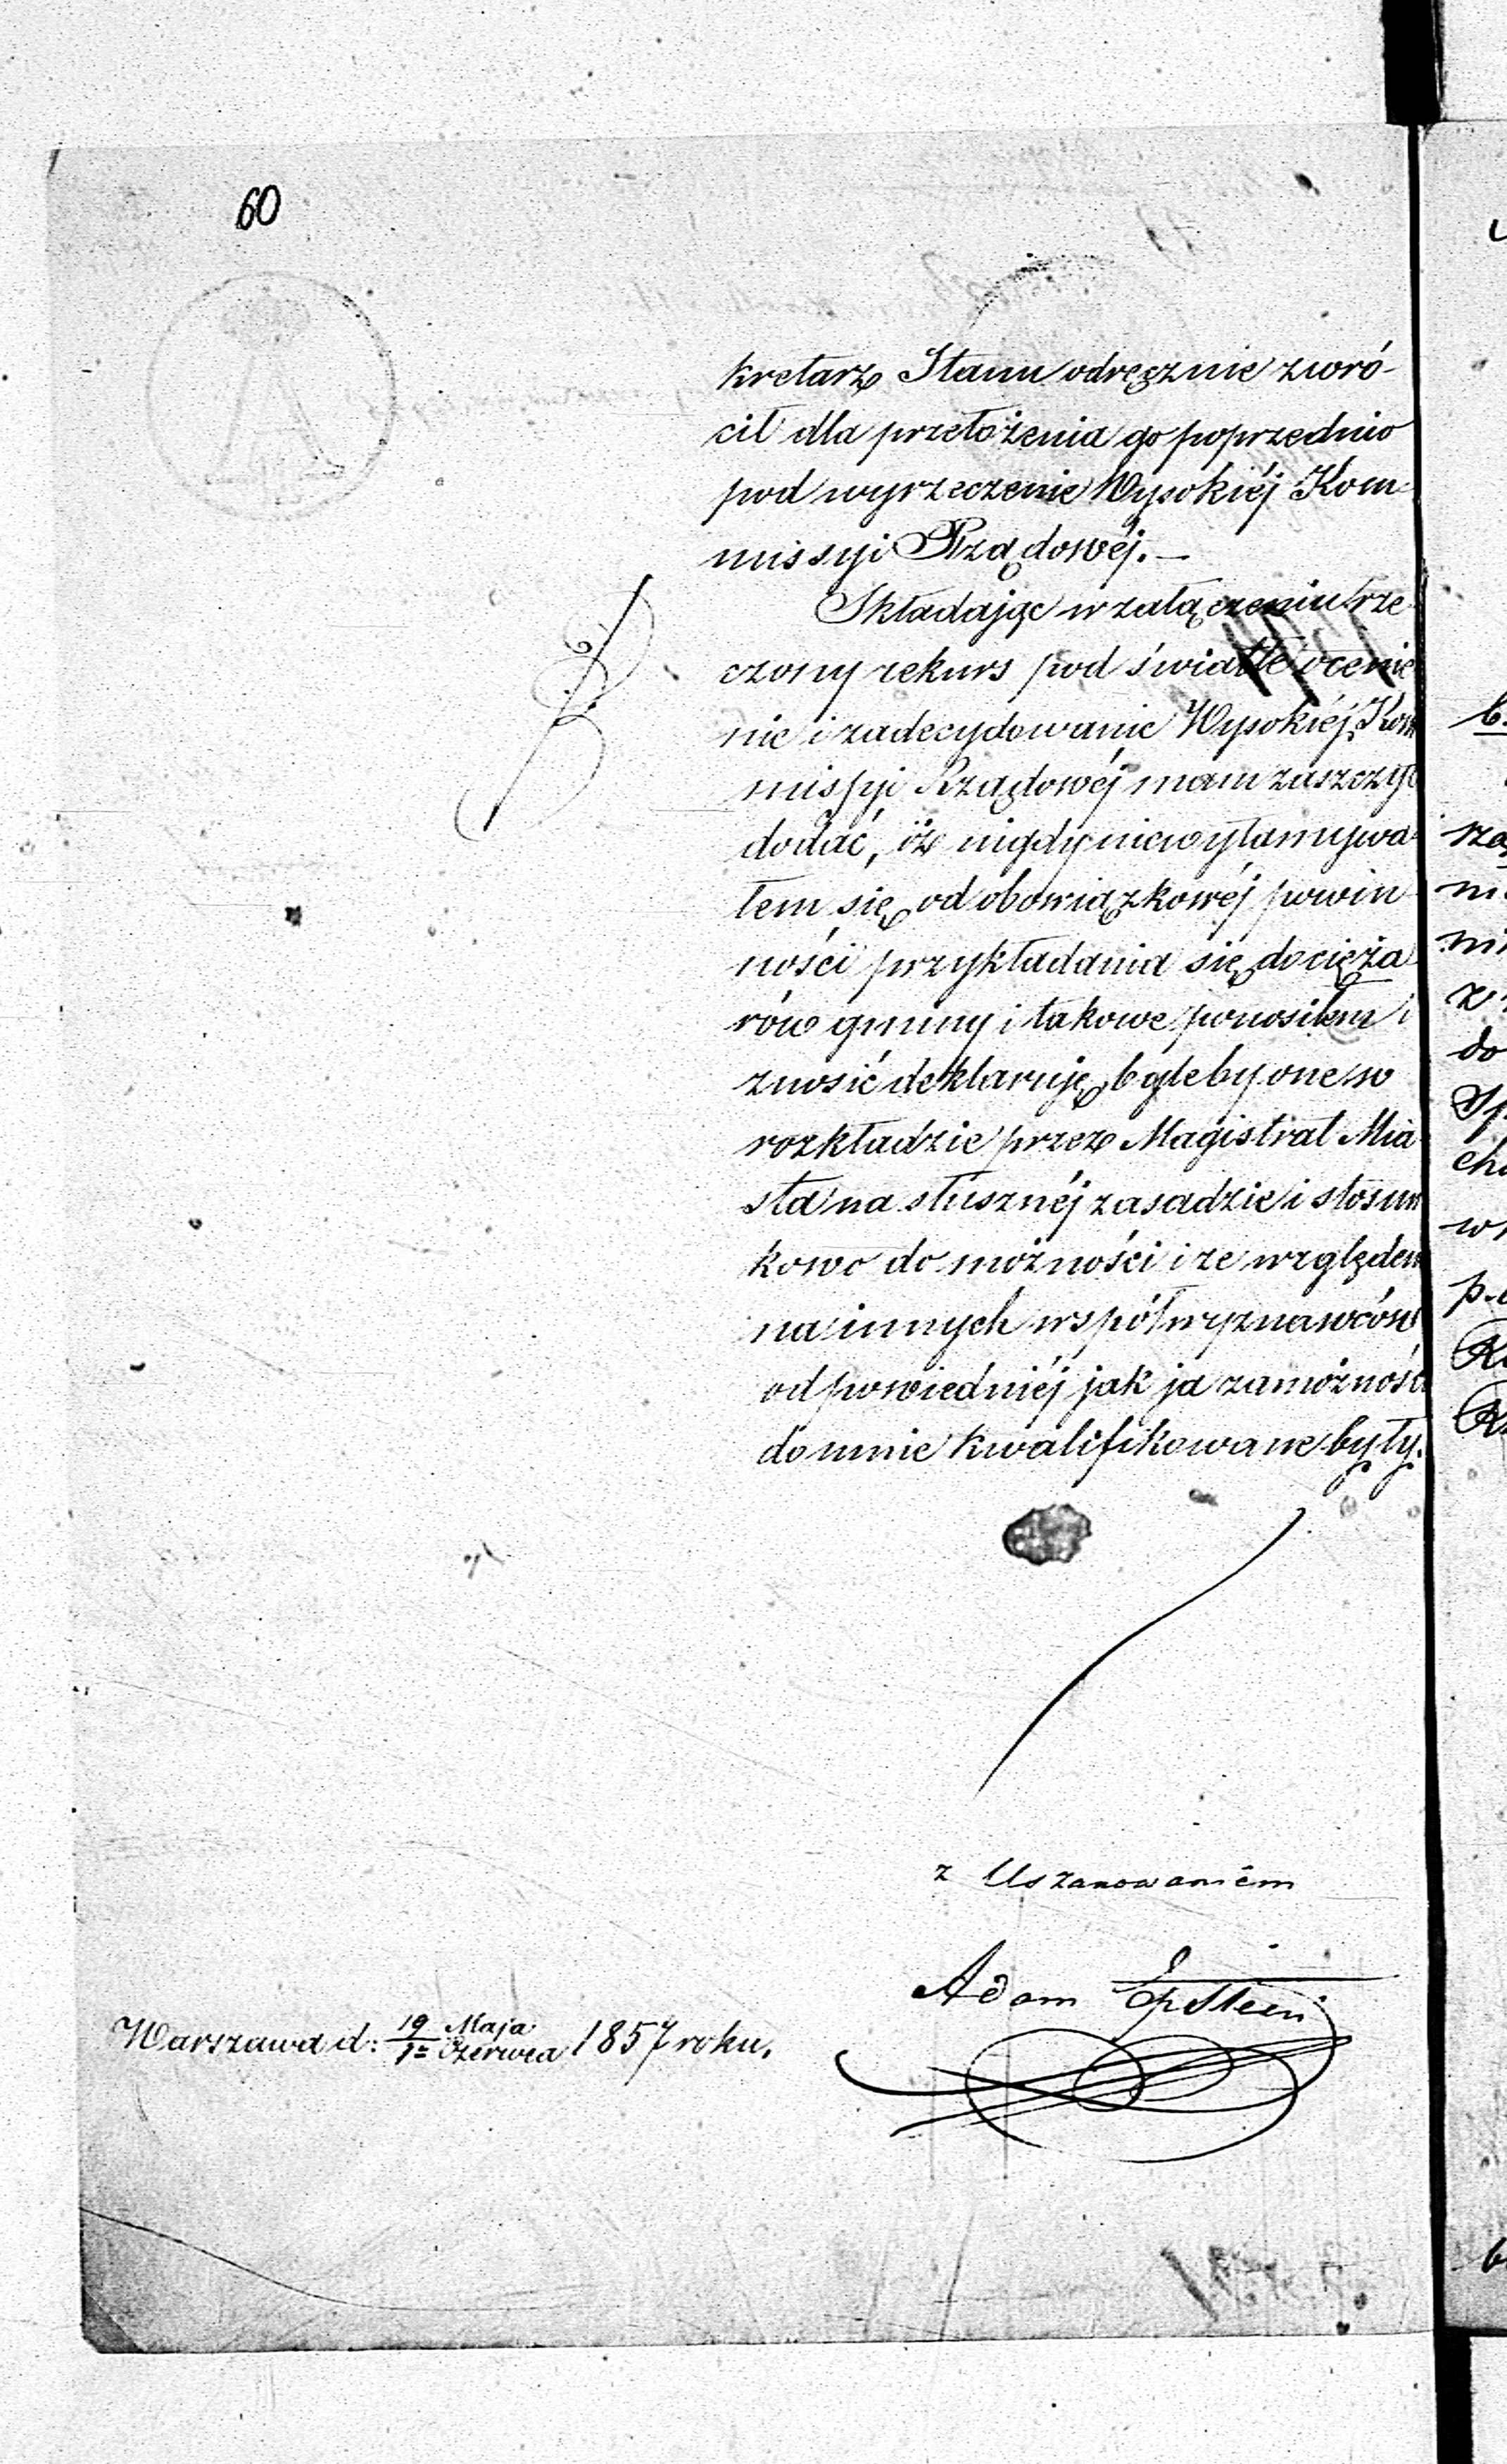 60
kretarz Stanu odręcznie zwró-
cił dla przełożenia go poprzednio
pod wyrzeczenie Wysokiéj Kom-
missyi Rządowéj. —
Składając w załączeniu rze-
czony rekurs pod światłe ocenie
nie i zadecydowanie Wysokiéj Kom
missyi Rządowéj mam zaszczyt
dodać, iż nigdy niewyłamywa-
łem się od obowiązkowéj powin-
ności przykładania się do cięża
rów gminy i takowe ponosiłem i
znosić deklaruję, byleby one w
rozkładzie przez Magistrat Mia
sta na słusznéj zasadzie i stosun
kowo do możności i ze względem
na innych współwyznawców
odpowiedniéj jak ja zamożności
do mnie kwalifikowane były.
z Uszanowaniem
Adam Epstein
Warszawa d: 19 Maja / 1= Czerwca 1857 roku.